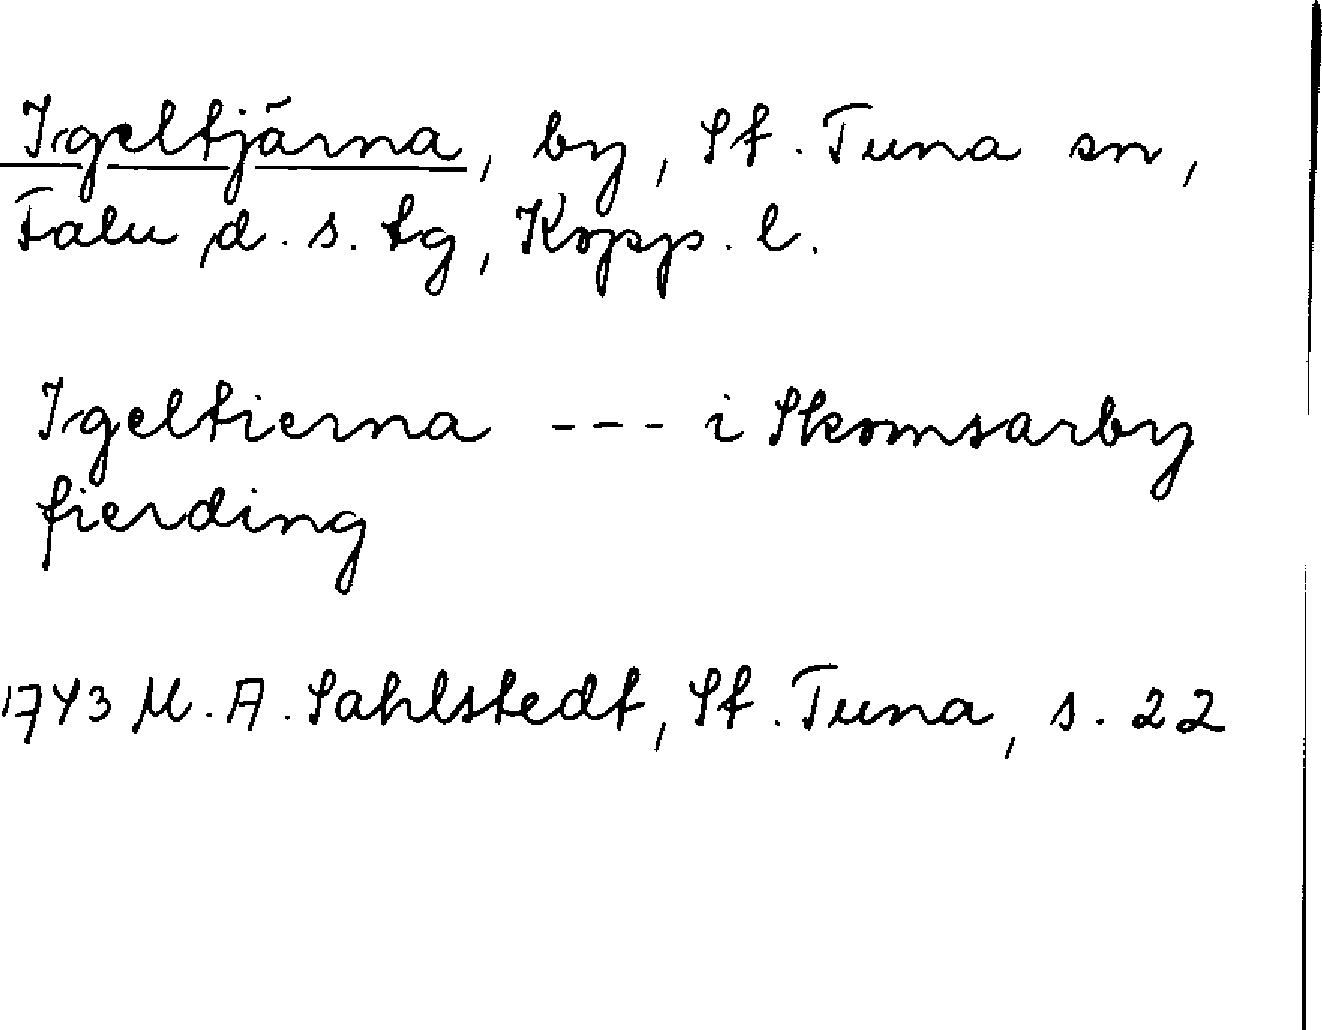 Igeltjärna, by, St. Tuna sn,
Falu d. s. tg, Kopp. l.
Igeltierna --- i Skomsarby
fierding
1743 M. A. Sahlstedt, St. Tuna, s. 22